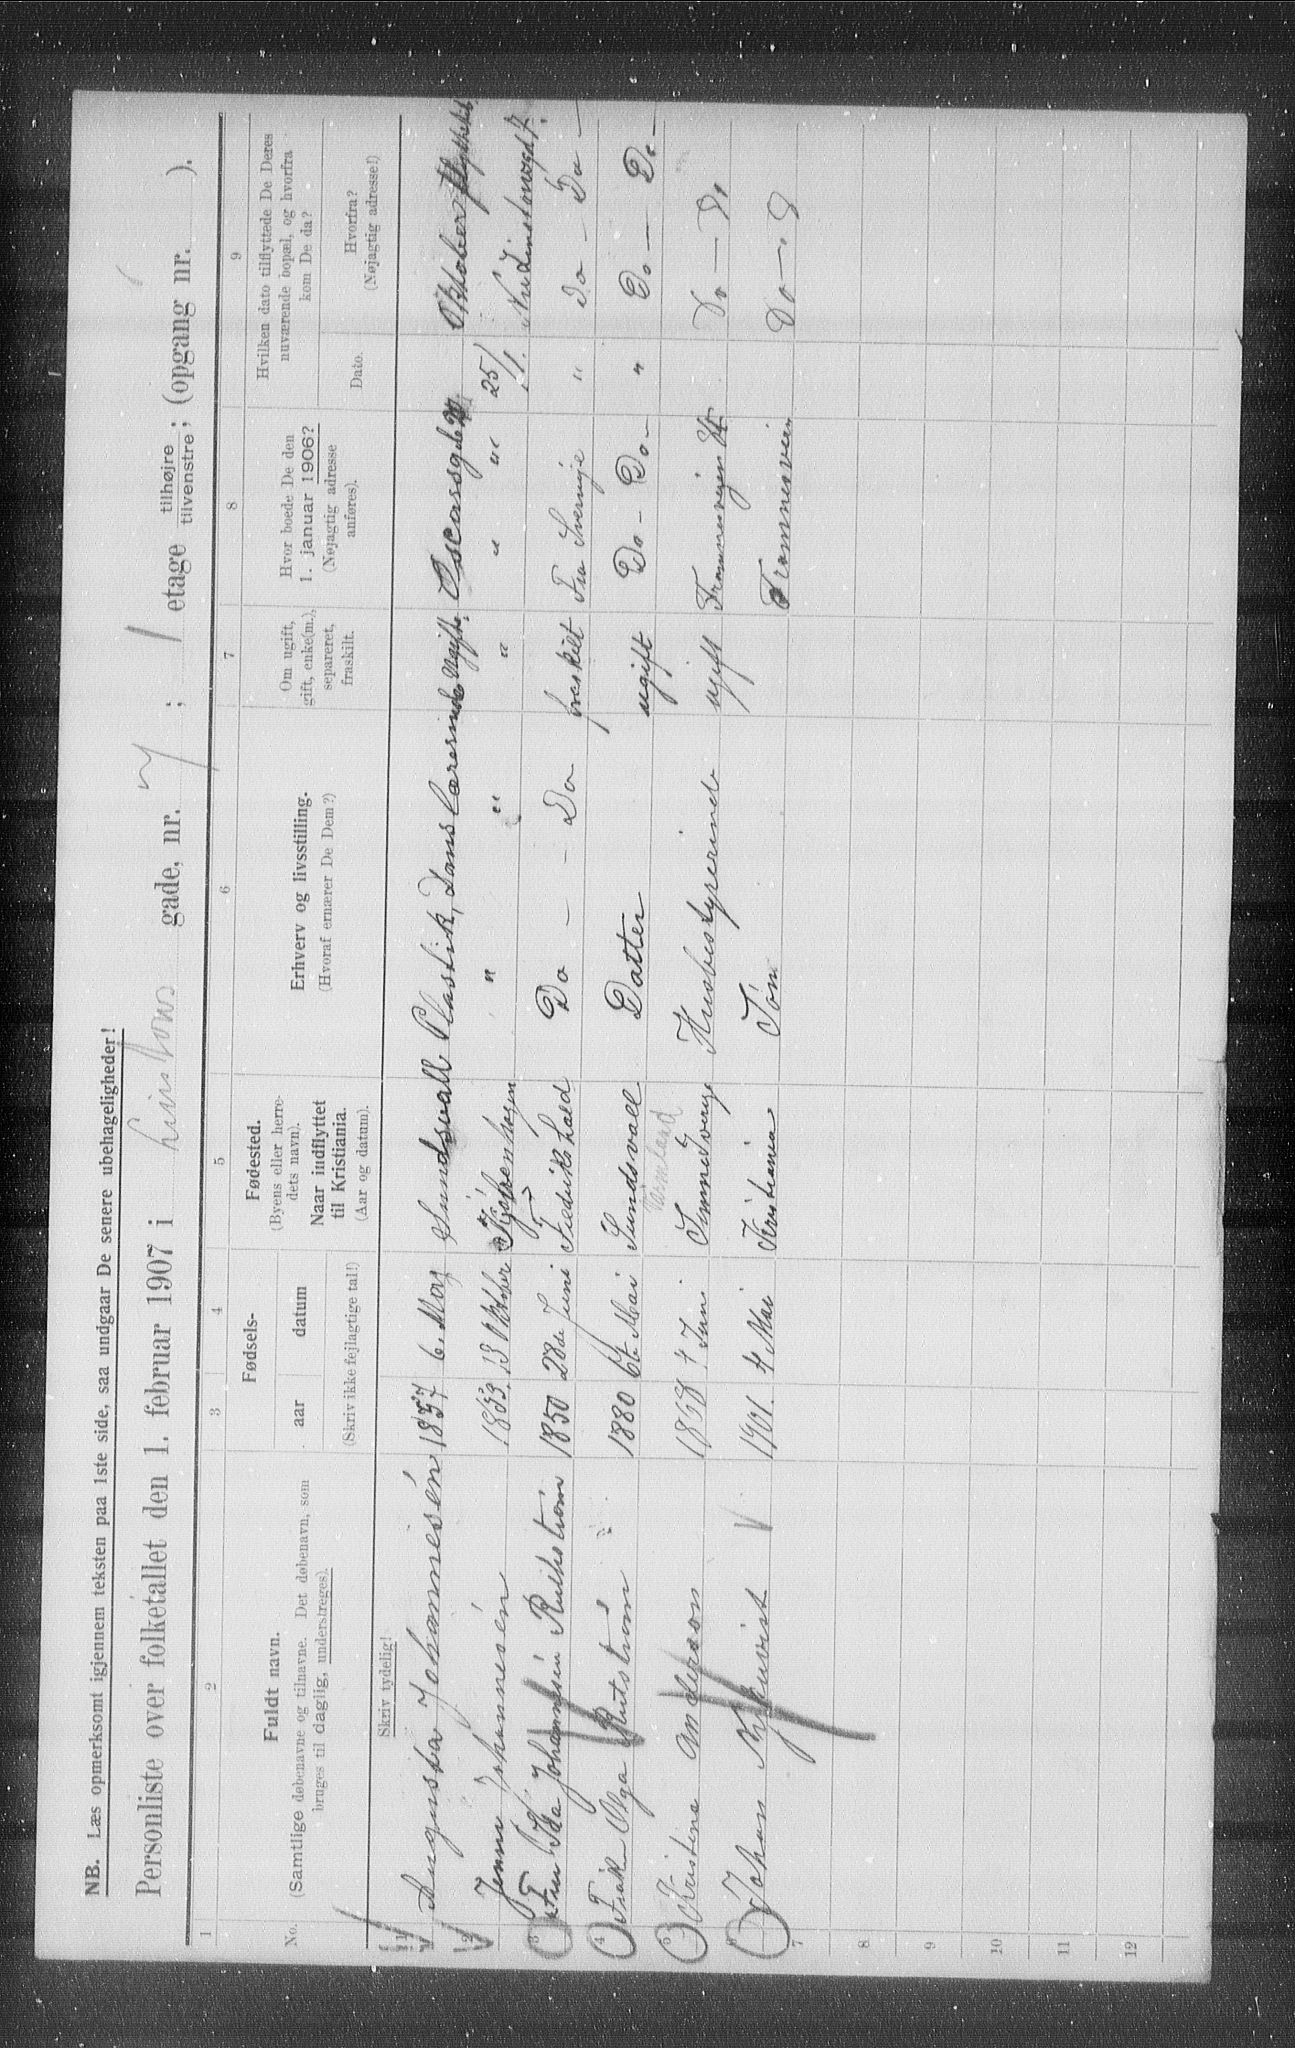 NB. Læs opmerksomt igjennem teksten paa 1ste side, saa undgaar De senere ubehageligheder!
Personliste over folketallet den 1. februar 1907 i gade, nr. 7; 1 etage tilhøjre tilvenstre; (opgang nr. ).
1 2 3 4 5 6 7 8 9
No.
Fuldt navn.
(Samtlige døbenavne og tilnavne. Det døbenavn, som
bruges til daglig, understreges).
Fødsels-
aar datum
Fødested.
(Byens eller herre-
dets navn).
Naar indflyttet
til Kristiania.
(Aar og datum).
Erhverv og livsstilling.
(Hvoraf ernærer De Dem?)
Om ugift,
gift, enke(m.),
separeret,
fraskilt.
Hvor boede De den
1. januar 1906?
(Nøjagtig adresse
anføres).
Hvilken dato tilflyttede De Deres
nuværende bopæl, og hvorfra
kom De da?
Dato.
Hvorfra?
(Nøjagtig adresse!)
Skriv tydelig!
(Skriv ikke fejlagtige tal!)
1 Augusta Johannesén 1857 6. Maj Sundsvall Plastik, Danslærerinde Ugift Oscarsg Oktober
2 Jenny Johannesén 1853. 13 Oktober Kjøbenhagen " " " " " 25/1.
3 Fru Ida Johannesén Ruthström 1850 28de Juni Fredrikshald Do - - Do fraskilt Fra Sverrige " Do - Do -
4 Frøken Olga Rutström 1880 6te Mai Sundsvall Datter ugift Do - Do - " Do - Do -
Värmland
5 Kristine Anderson 1868 4 Jun. Husbestyrerinde ugift Do -
6 Johan 1901. 4 Mai Kristiania Søn Do -
7
8
9
10
11
12